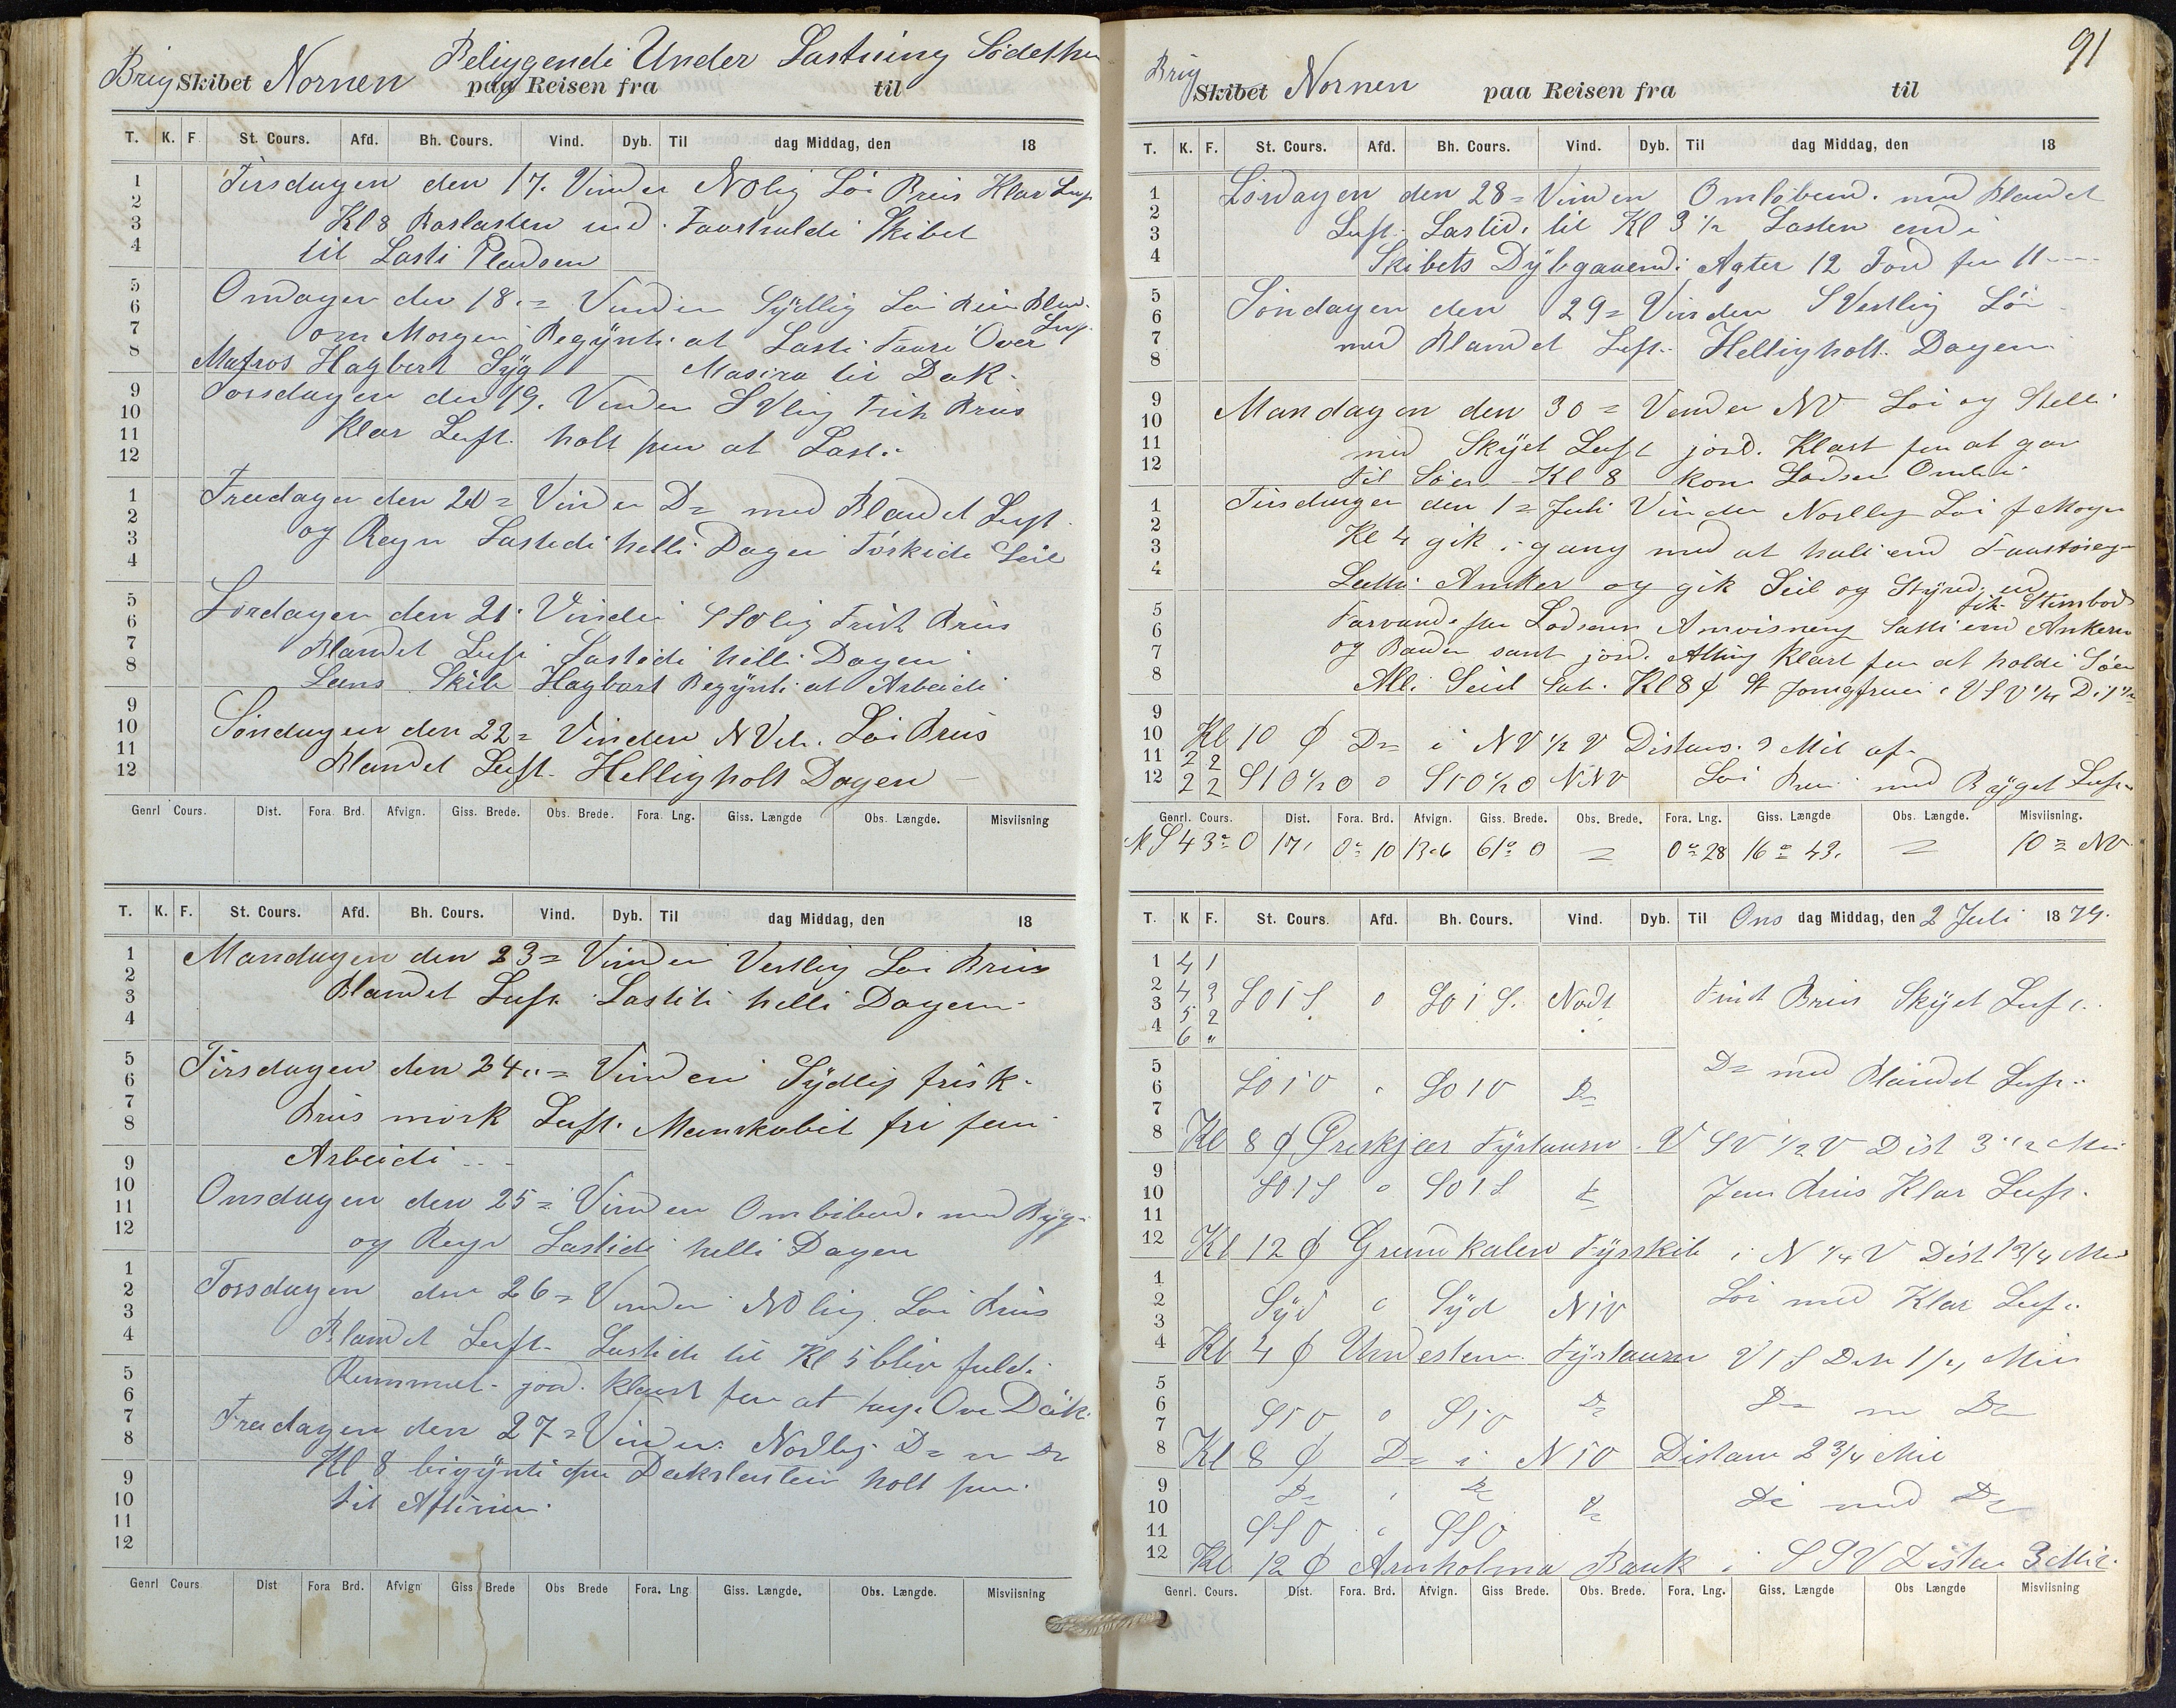 Brig Skibet Nornen paa Reisen fra til
Beliggendi Under Lastning
T. K. F. St. Cours. Afd. Bh. Cours. Vind. Dyb. Til dag Middag, den 18
Tirsdagen den 17. Vinden NOlig Löi Briis Klar Luft
Kl 8 Barlasten ud. Skibet
til Lasti Pladsen
Onsdagen den 18.= Vinden Sÿdlig Löi Briis Bland.
Luft
om Morgen Begÿnti at Lasti Over
Matros Hagbert Sÿg
Torsdagen den 19. Vinden SVlig Frisk Briis
Klar Luft. holt paa at Last.
Freedagen den 20= Vinden D= med Blandet Luft
og Regn Lastedi helli Dagen Törkede Seil
Lördagen den 21. Vinden SSOlig Frisk Briis
Blandet Luft Lastedi helli Dagen
Lens Skib Hagbart Begÿnti at Arbeidi
Söndagen den 22= Vinden NVtl. Löi Briis
Blandet Luft. Hellig holt Dagen
Genrl Cours. Dist. Fora. Brd. Afvign. Giss. Brede. Obs. Brede. Fora. Lng. Giss. Længde Obs. Længde. Misviisning
T. K. F. St. Cours. Afd. Bh. Cours. Vind. Dyb. Til dag Middag, den 18
Mandagen den 23= Vinden Vestlig Löi Briis
Blandet Luft Lastiti helli Dagen
Tirsdagen den 24.= Vinden Sÿdlig frisk
Briis mörk Luft. Manskabit fri
Arbeidi
Onsdagen den 25= Vinden med Bÿg
og Regn Lastidi helli Dagen
Torsdagen den 26= Vinden NOlig Löi Briis
Blandet Luft. Lastidi til Kl 5 bliv fuld i
Rummet. jord. klart for at tage Over Däk.
Freedagen den 27= Vinden Nordlig D= m D=
Kl 8 bigÿnti paa Dækslasten holt paa
til Aftinen.
Genrl Cours Dist Fora Brd. Afvign Giss Brede Obs Brede Fora. Lng Giss. Længde. Obs. Længde. Misviisning
91
Brig Skibet Nornen paa Reisen fra til
T. K. F. St. Cours. Afd. Bh. Cours. Vind. Dyb. Til dag Middag, den 18
Lördagen den 28= Vinden Omlöbend. med Blandet
Luft. Lastid. til Kl 3 1/2 Lasten endi
Skibets Dÿbgaaend: Agter 12 Fod for 11
Söndagen den 29= Vinden SVestlig Löi
med Blandet Luft. Hellig holt. Dagen
Mandagen den 30= Vinden NV Löi og Stelli
med Skÿet Luft jord. Klart for at gaa
til Söen Kl 8 kom Lodsen Ombord
Tirsdagen den 1= Juli Vinden Nordlig Löi f Morgen
Kl 4 gik i gang med at hali ind
Anker og gik Seil og Stÿred ud
fik Stimbod
Farvande for Lodsens Anvisning Satti ind Ankern
og Baaden samt jord. Alting Klart for at holdi Söen
All. Seil Sat. Kl 8 ϕ St Jomgfruei i VSV 1/4
Kl 10 ϕ D= i NV 1/2 V Distans. 3 Mil af
2 2
2 2 StO 1/2 O 0 StO 1/2 O NNV Löi Briis med Bÿget Luft
Genrl. Cours. Dist. Fora. Brd. Afvign. Giss. Brede. Obs. Brede. Fora. Lng. Giss. Længde Obs. Længde. Misviisning.
S 43° O 17, 0° 10 13.6 61° 0 = 0° 28 16° 43, = 10= NV
T. K F. St. Cours. Afd. Bh. Cours. Vind. Dyb. Til Ons dag Middag, den 2 Juli 18 79.
4 1
4 3 SOtS 0 SOtS. Nodt Frist Briis Skÿet Luft.
5 2
6 "
SOtO SOtO D= D= med Blandet Luft.
Kl 8 ϕ Öreskjær Fÿrtaarn. V SV 1/2 V Dist 3 1/2 Mil
SOtS 0 SOtS Jen Briis Klar Luft.
Kl 12 ϕ Grundkalen Fÿrskib i N 1/4 V Dist 1 3/4 Mil
Sÿd Sÿd NtV Löi med Klar Luft.
Kl 4 ϕ Understen Fÿrtaarn VtS Dist
StO 0 StO D= D= m D=
Kl 8 ϕ D= i NtO Distans 2 3/4 Mil
D= D= D= med D=
SSO SSO
Kl 12 ϕ Arnholma Baak i SSV Distan 3 Mil.
Genrl. Cours. Dist. Fora. Brd. Afvign. Giss Brede. Obs. Brede. Fora. Lng. Giss. Længde Obs Længde Misviisning